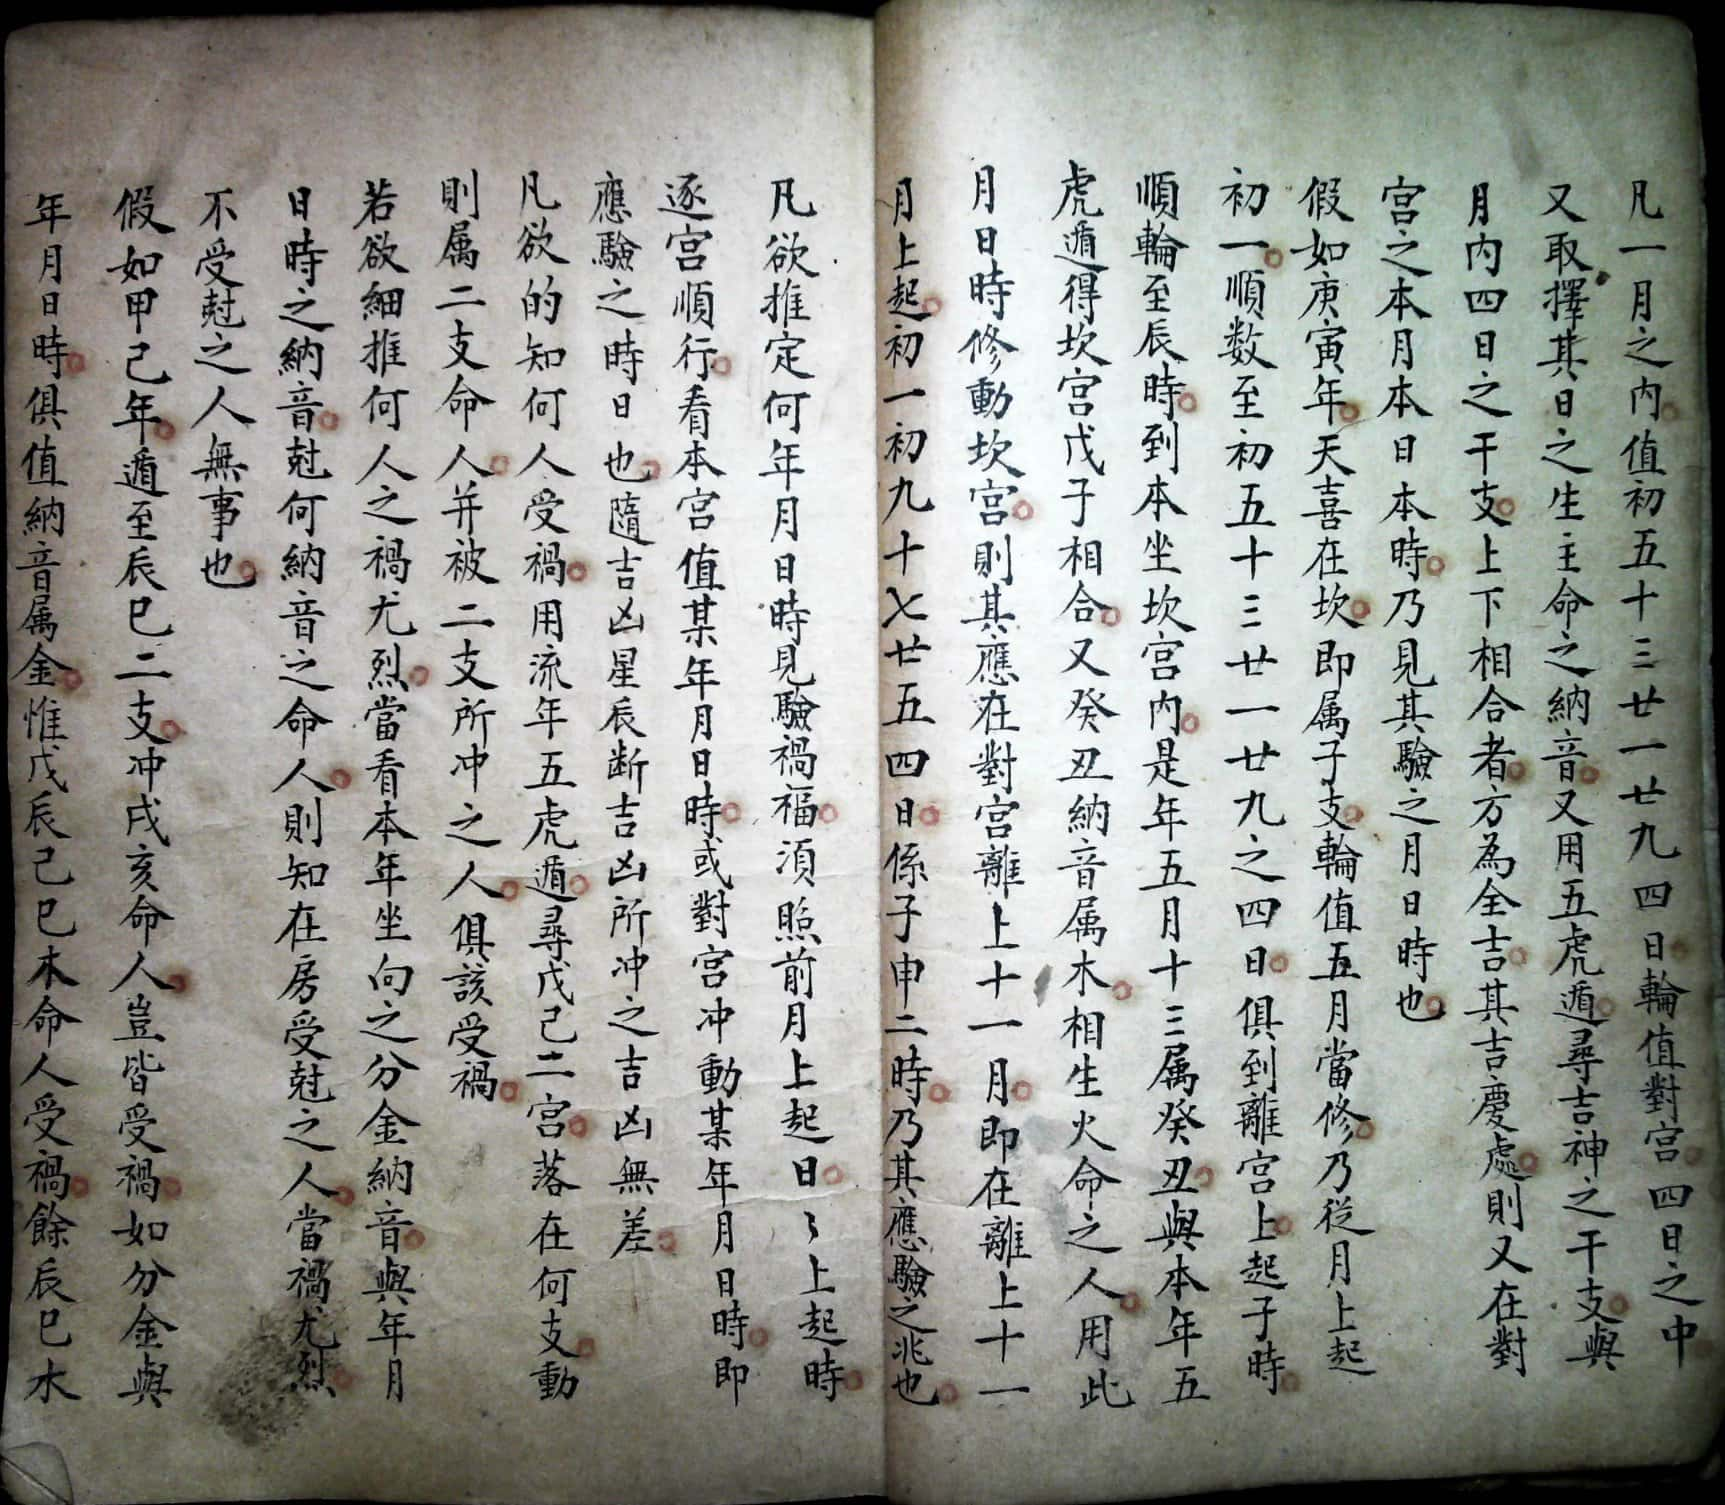 凡一月之內值初五十三廿一廿九四日輪值對宮四日之中
又取擇其日之生主命之納音又用五虎遁尋吉神之干支與
月內四日之干支上下相合者方為全吉其吉慶處則又在對
宮之本月本日本時乃見其驗之月日時也
假如庚寅年天喜在坎即属子支輪值五月當修乃從月上起
初一順数至初五十三廿一廿九之四日俱到離宮上起子時
順輪至辰時到本坐坎宮內是年五月十三属癸丑與本年五
虎遁得坎宮戊子相合又癸丑納音属木相生火命之人用此
月日時修動坎宮則其應在對宮離上十一月即在離上十一
月上起初一初九十七廿五四日係子申二時乃其應驗之兆也
凡欲推定何年月日時見驗禍福須照前月上起日〻上起時
逐宮順行看本宮值某年月日時或對宮冲動某年月日時即
應驗之時日也隨吉凶星辰断吉凶所冲之吉凶無差
凡欲的知何人受禍用流年五虎遁尋戊己二宮落在何支動
則属二支命人并被二支所冲之人俱該受禍
若欲細推何人之禍尤烈當看本年坐向之分金納音與年月
日時之納音尅何納音之命人則知在房受尅之人當禍尤烈
不受尅之人無事也
假如甲己年遁至辰巳二支冲戌亥命人豈皆受禍如分金與
年月日時俱值納音属金惟戊辰己巳木命人受禍餘辰巳水